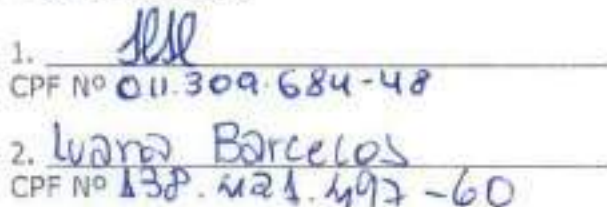 1.
CPF Nº 011.309.684-48
2. Luana Barcelos
CPF Nº 138.421.497-60